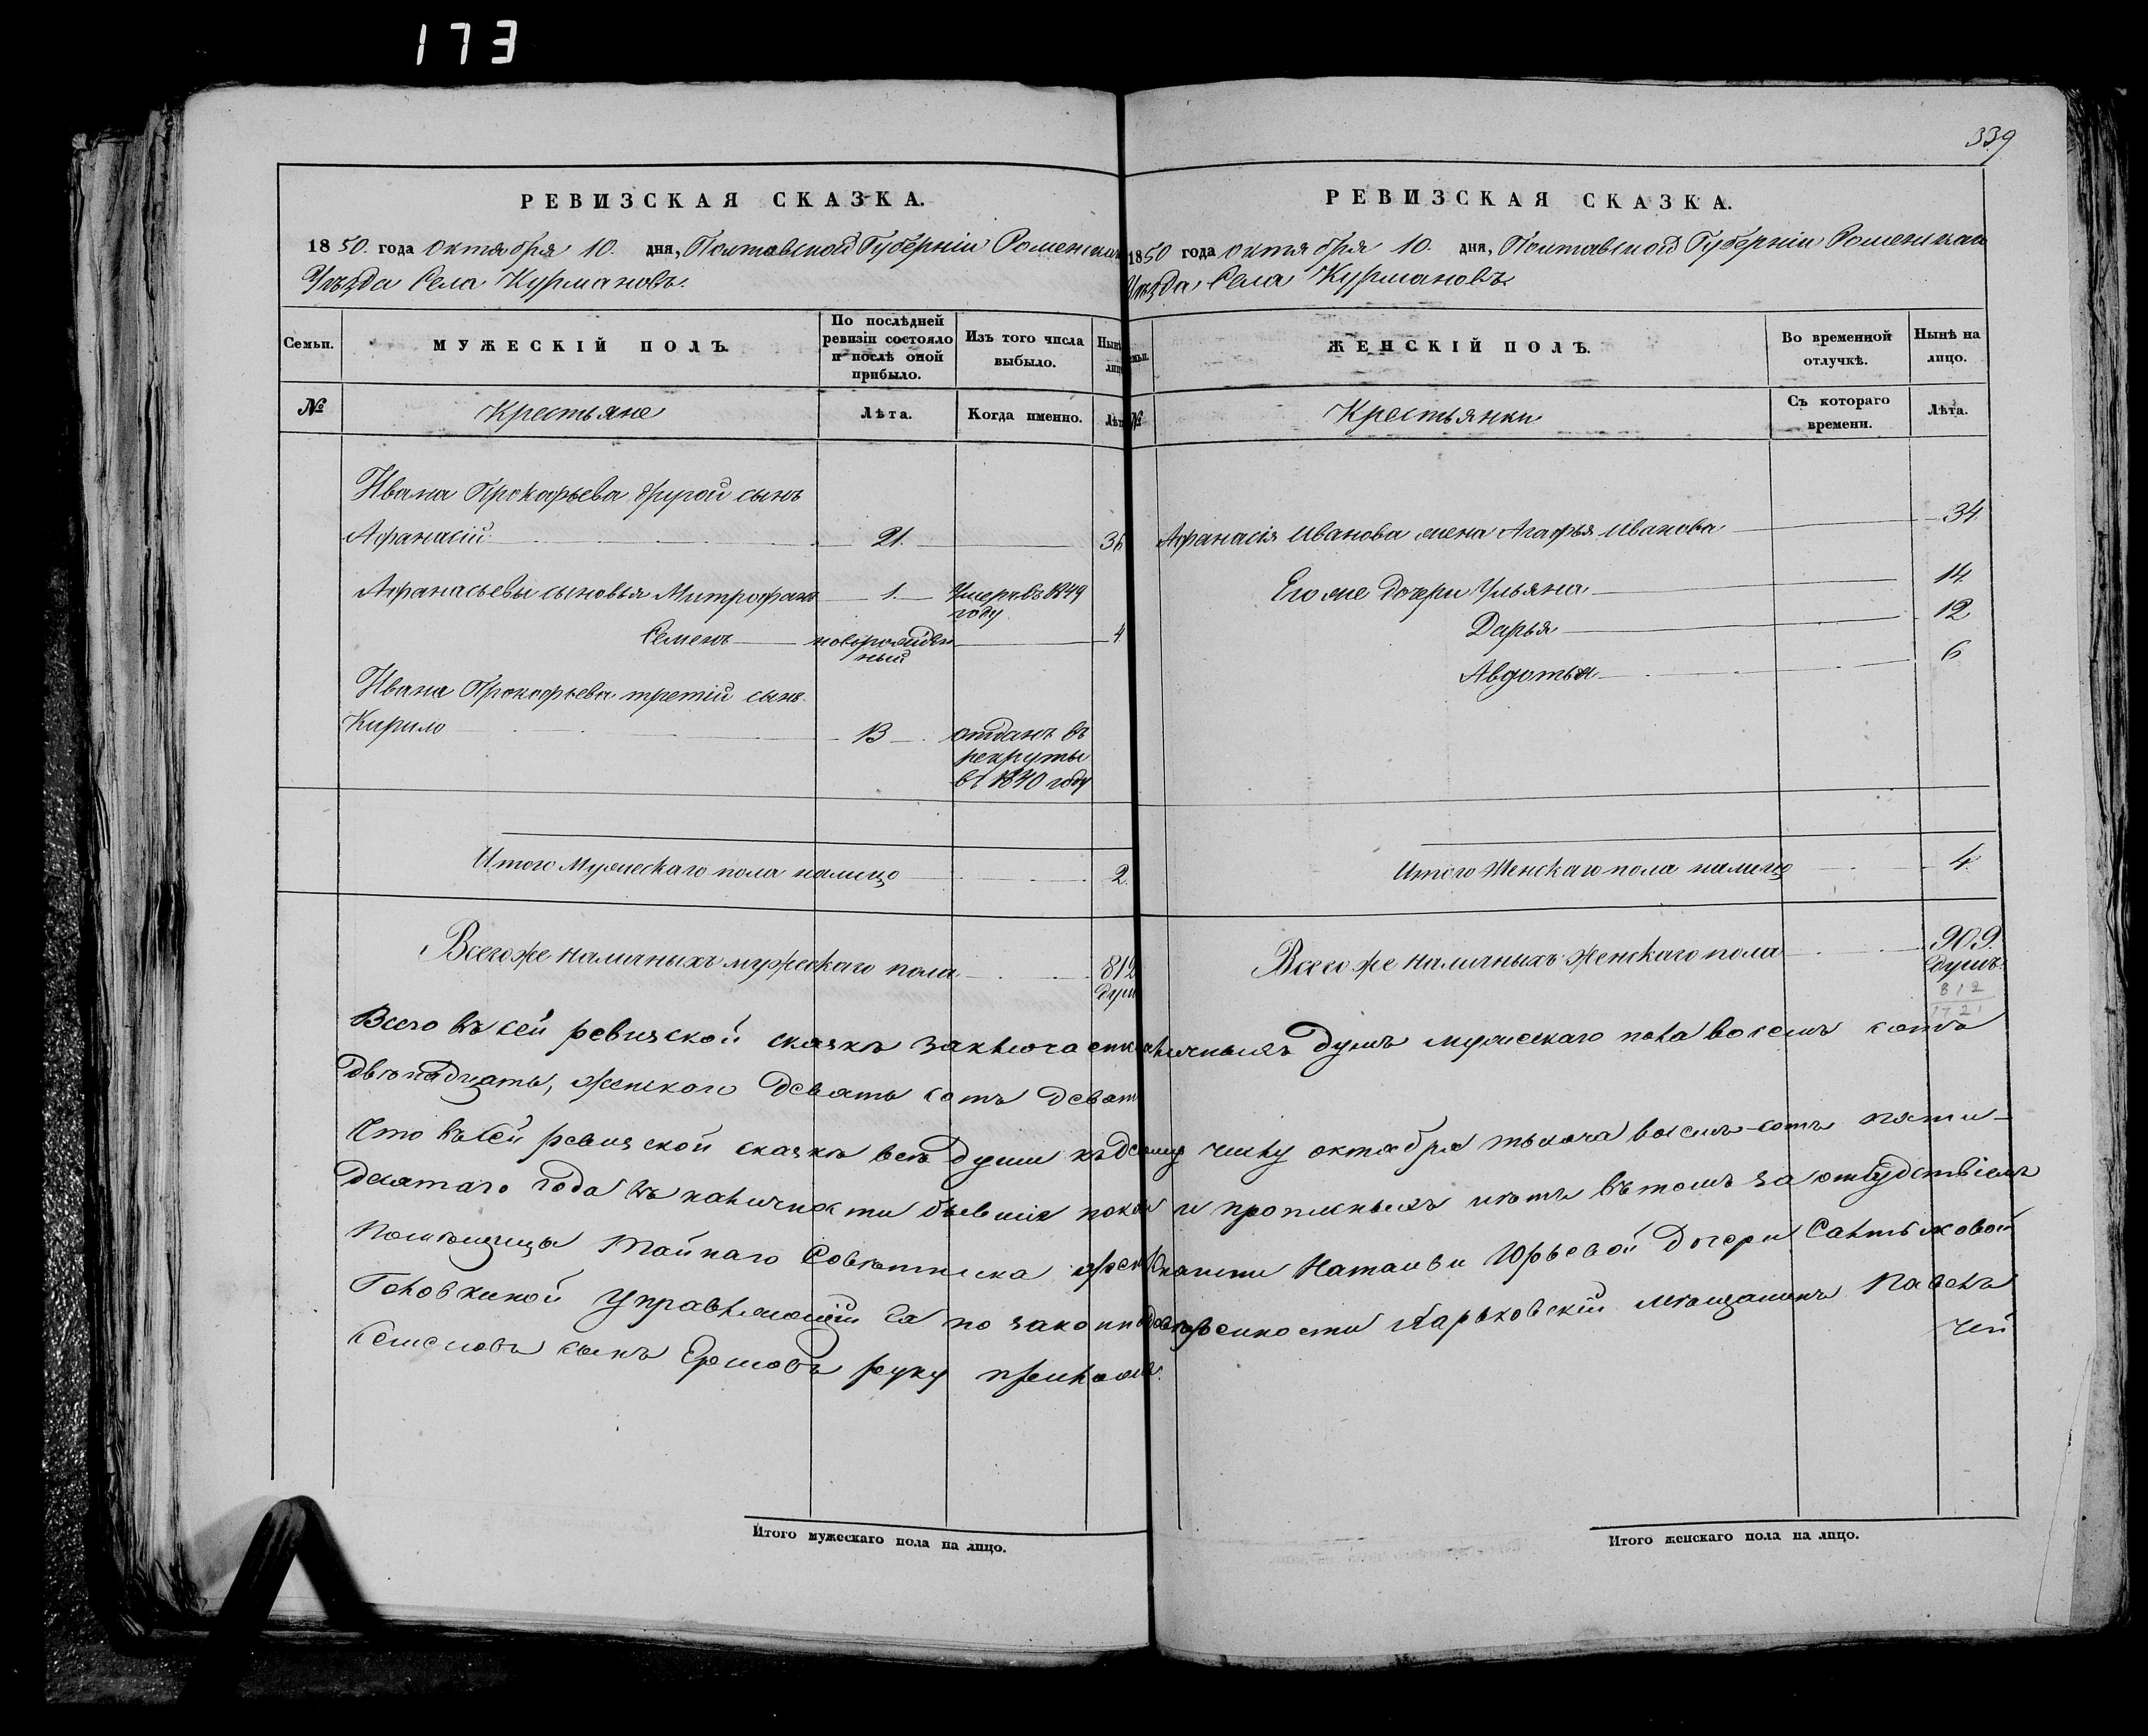 173
339
РЕВИЗСКАЯ СКАЗКА.
1850. года октября 10. дня, Полтавской Губерніи Роменскаго
Уѣзда Села Курмановъ.
Семьи.
МУЖЕСКІЙ ПОЛЪ.
По послѣдней ревизіи состояло и послѣ оной прибыло.
Изъ того числа выбыло.
Нынѣ лицо
№
Крестьяне
Лѣта.
Когда именно.
Лѣта
Ивана Прокофьева другой сынъ
Афанасій 21. 36
Афанасьевы сыновья Митрофанъ 1. Умеръ въ 1849
году
Семенъ новорожден 4
ный
Ивана Прокофьева третій сынъ
Кирило 13 отданъ въ
рекруты
въ 1840 году
Итого Мужескаго пола налицо 2.
Всего же наличныхъ мужескаго пола 812
душ
РЕВИЗСКАЯ СКАЗКА.
1850 года октября 10. дня, Полтавской Губерніи Роменскаго
Уѣзда Села Курмановъ.
Семьи.
ЖЕНСКІЙ ПОЛЪ.
Во временной отлучкѣ.
Нынѣ на лицо.
№
Крестьянки
Съ котораго времени.
Лѣта.
Афанасія Иванова жена Агафья Иванова 34.
Его же дочери Ульяна 14.
Дарья 12.
Авдотья 6
Итого Женскаго пола налицо 4.
Всего же наличныхъ Женскаго пола 909.
душъ.
812
1721
Всего въ сей ревизской сказкѣ заключается наличныхъ душъ мужескаго пола восемь сотъ
двѣнадцать, женскаго девять сотъ девять
Что въ сей ревизской сказкѣ всѣ души къ десятому числу октября тысяча восемь-сотъ пяти-
десятаго года въ наличности бывшія показаны и прописныхъ нѣтъ въ томъ за отсудствіемъ
Помѣщицы Тайнаго Совѣтника жены Наталіи Юрьевой дочери Салтыковой
Головкиной Управляющій Ея по законной довѣренности Харьковскій мѣщанинъ Павелъ
Семеновъ сынъ Ершовъ руку приложилъ.
Итого мужескаго пола на лицо.
Итого женскаго пола на лицо.